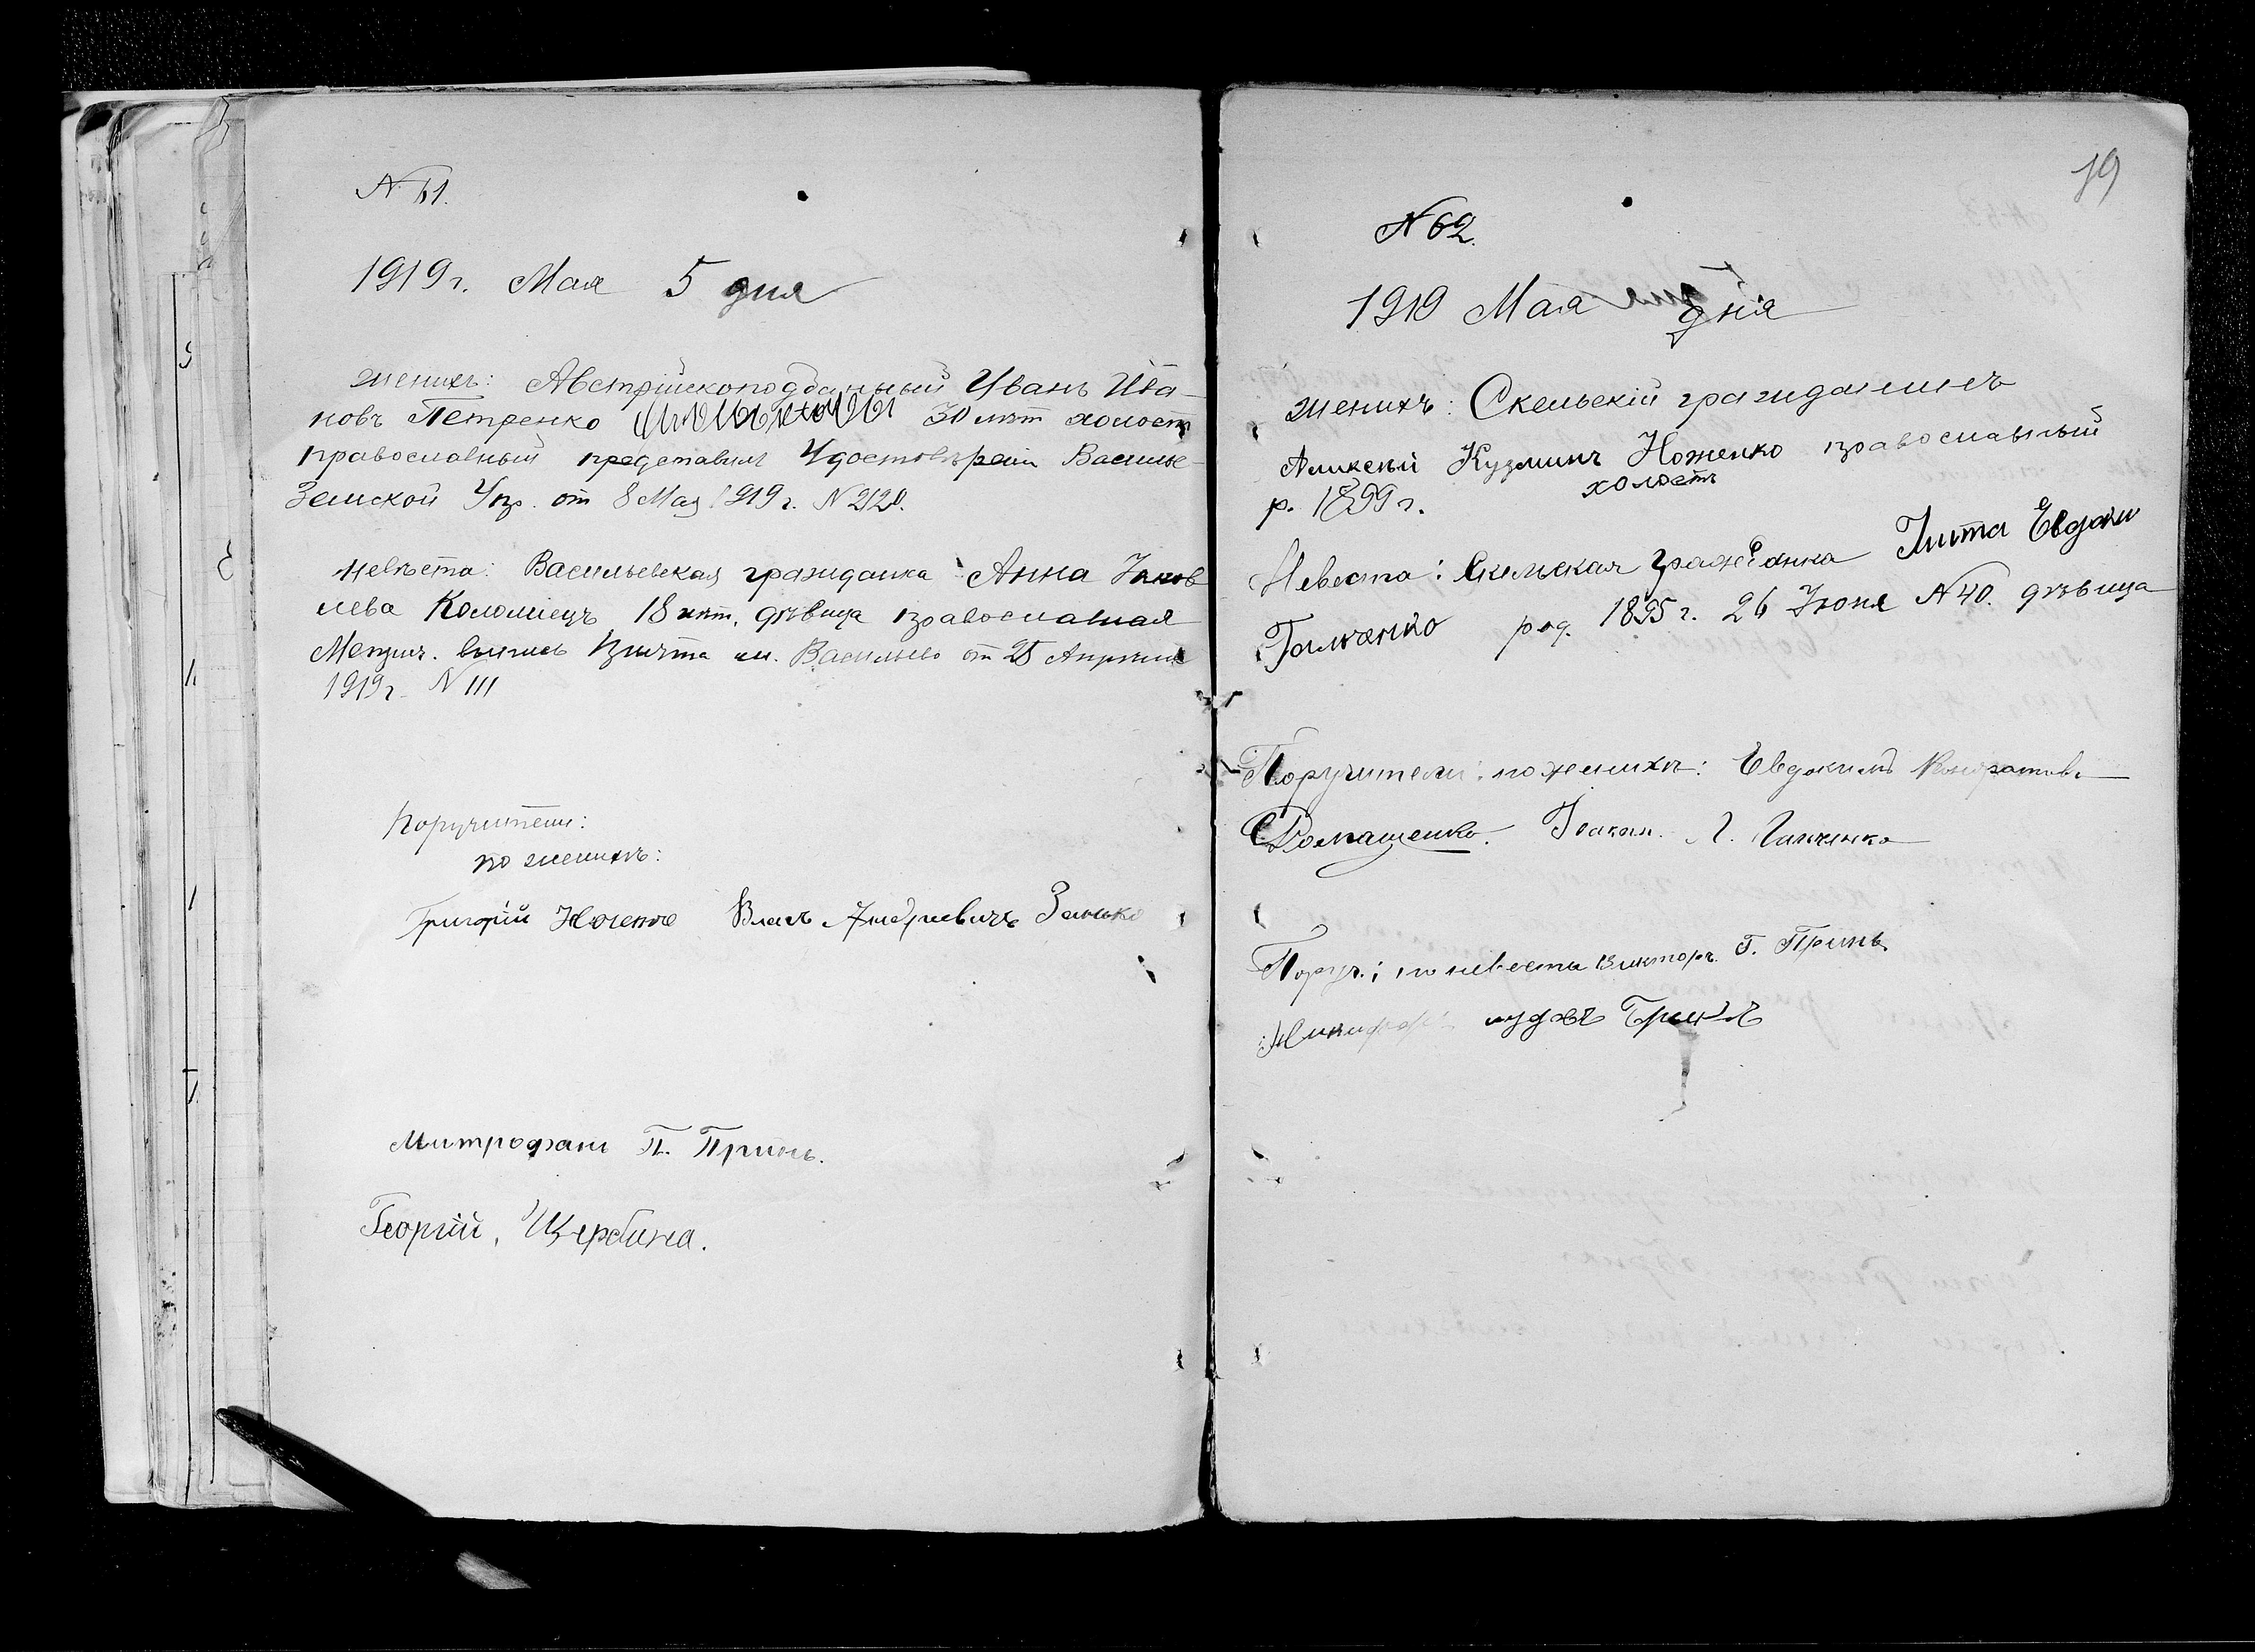 N 61.
1919 г. Мая 5 дня
женихъ: Австрійскоподданный Иванъ Ива-
новъ Петренко 30 лѣт холост
православный представил Удостовѣрен Василье-
Земской Упр. от 8 Мая 1919 г. N 2120.
невѣста: Васильевская гражданка Анна Яков
лева Коломіецъ 18 лѣт, дѣвица православная
Метрич. выпись от 25 Апрѣля
1919 г. N 111
Поручители:
по женихѣ:
Григорій Власъ Андреевичъ
Митрофанъ П. Принь.
Георгій, Щербина.
19
N 62.
1919 Мая дня
женихъ: Скельскій гражданинъ
Аликсѣй Кузминъ Ноженко православный
холостъ
р. 1899 г.
Невеста: Скельская гражданка Евдоки
Галченко род. 1895 г. 26 Июня N 40. дѣвица
Поручители: по жениху: Евдокимъ Кондратовъ
Ромащенко. Іоаким. Л. Галченко
Поруч.: по невесты Викторъ Г. Принь
Никифоръ